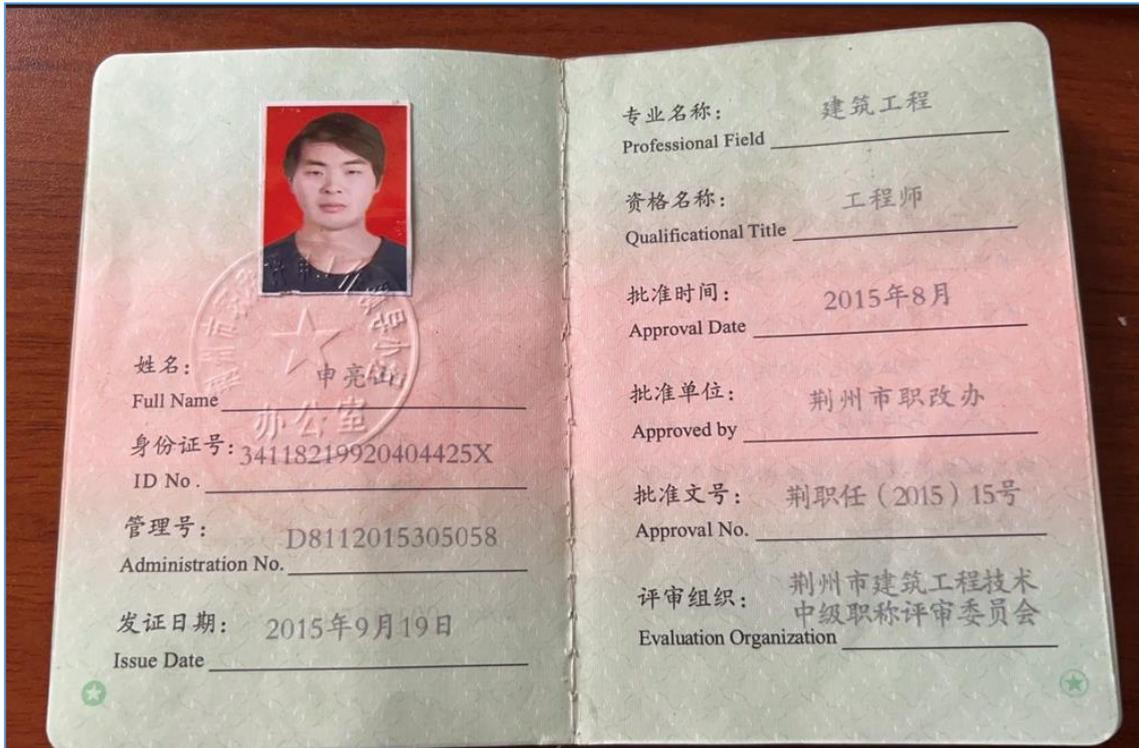 姓名： 申亮山
Full Name
身份证号： 34118219920404425X
ID No .
管理号： D8112015305058
Administration No.
发证日期： 2015年9月19日
Issue Date
办公室
专业名称： 建筑工程
Professional Field
资格名称： 工程师
Qualificational Title
批准时间： 2015年8月
Approval Date
批准单位： 荆州市职改办
Approved by
批准文号： 荆职任（2015）15号
Approval No.
评审组织： 荆州市建筑工程技术
中级职称评审委员会
Evaluation Organization